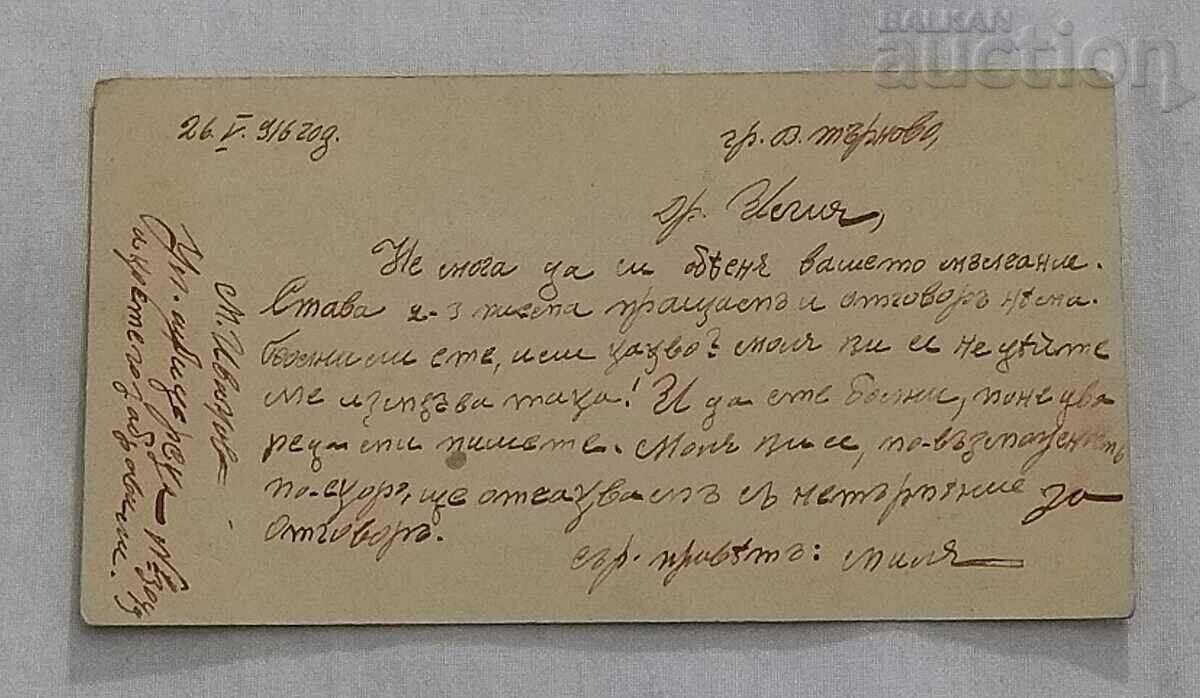 BALKAN
auction
26. V. 916 год.
гр. В. Търново,
Др.
Не мога да си обѣсня вашето мълчание.
Става 2-3 писма пращамъ и отговоръ нѣма.
Болни ли сте, или какво? Моля ви се недѣйте
ме така! И да сте болни, поне два
реда ми пишете. Моля ви се, по-възможность
по-скоро, ще отсакvамъ съ нетърпѣние за
отговоръ.
сър. привѣтъ: Миля
М. Иванова
Ул. №